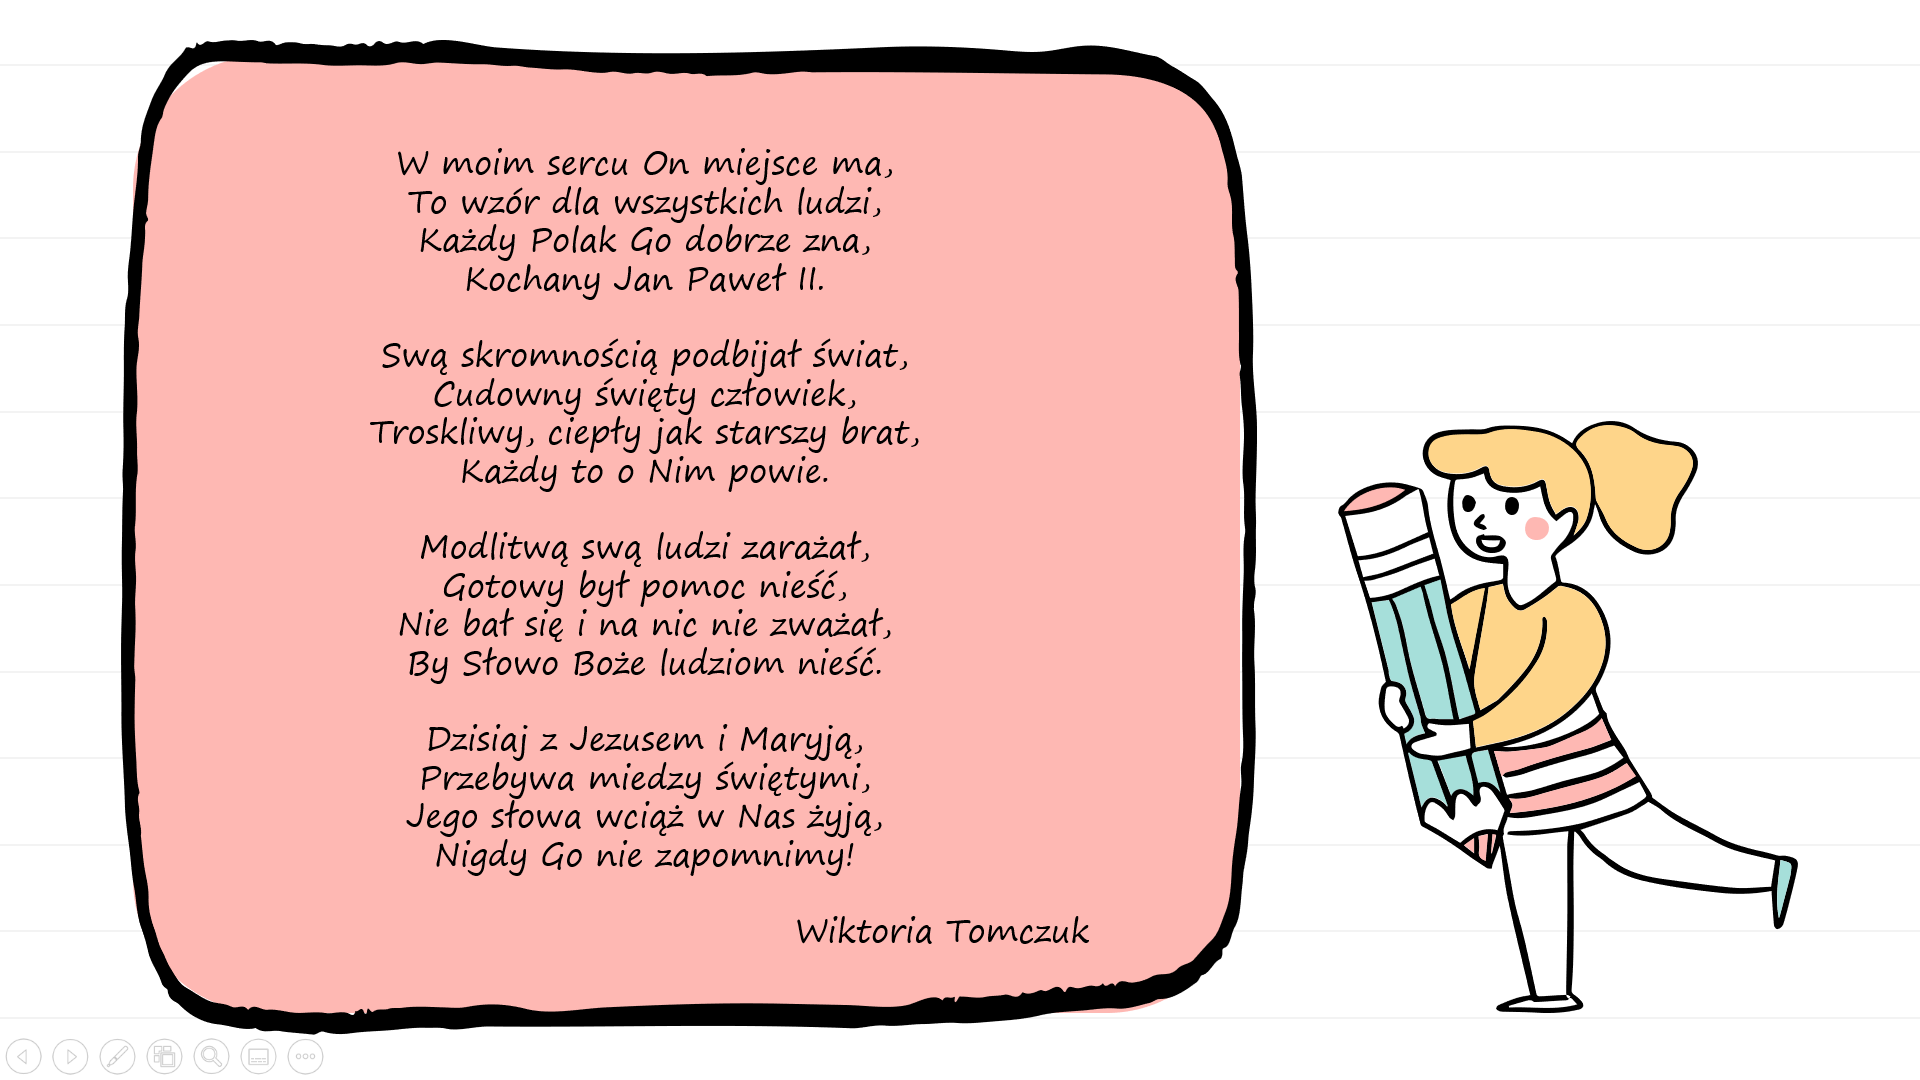 W moim sercu On miejsce ma,
To wzór dla wszystkich ludzi,
Każdy Polak Go dobrze zna,
Kochany Jan Paweł II.
Swą skromnością podbijał świat,
Cudowny święty człowiek,
Troskliwy, ciepły jak starszy brat,
Każdy to o Nim powie.
Modlitwą swą ludzi zarażał,
Gotowy był pomoc nieść,
Nie bał się i na nic nie zważał,
By Słowo Boże ludziom nieść.
Dzisiaj z Jezusem i Maryją,
Przebywa miedzy świętymi,
Jego słowa wciąż w Nas żyją,
Nigdy Go nie zapomnimy!
Wiktoria Tomczuk